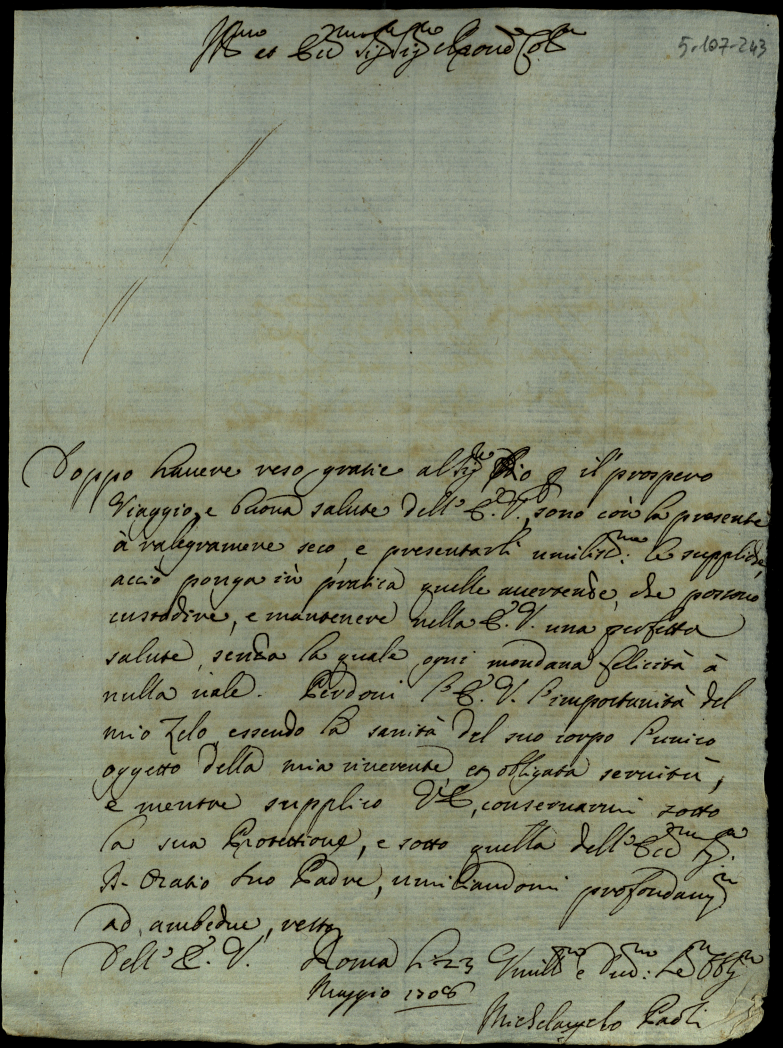 Ill.mo et Ecc.mo Sig.r Sig.r e Pron Col.mo
5-107-243
Doppo havere reso gratie al Sig.re Dio p il prospero
Viaggio, e buona salute dell'E.V., sono con la presente
à ralegrarmene seco, e presentarli umiliss.me le suppliche,
acciò ponga in pratica quelle avertenze, che possono
custodire, e mantenere nella E.V. una perfetta
salute, senza la quale ogni mondana felicità à
nulla vale. Perdoni l'E.V. l'importunità del
mio Zelo, essendo la sanità del suo corpo l'unico
oggetto della mia riverente, et obligata servitù,
e mentre supplico V.E. conservarmi sotto
la sua Protettione, e sotto quella dell'Ecc.mo Sig.r
D. Oratio suo Padre, umiliandomi profondam.te
ad ambedue, resto
Dell'E.V. Roma li 23 Umiliss.mo e Dev.mo Se.re Obblig.mo
Maggio 1706
Michelangelo Paoli